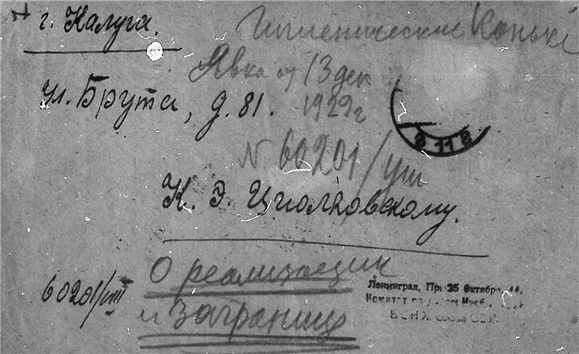 г. Калуга.
Гигиенические Коньки
Явка от 13 дек
1929 г
ул. Брута, д. 81.
N 60201/уш
К. Э. Циолковскому.
О реализации
и заграницу
60201/
Ленинград, Пр. 25 Октября, 44,
Комитет по
ВСНХ Союза ССР.